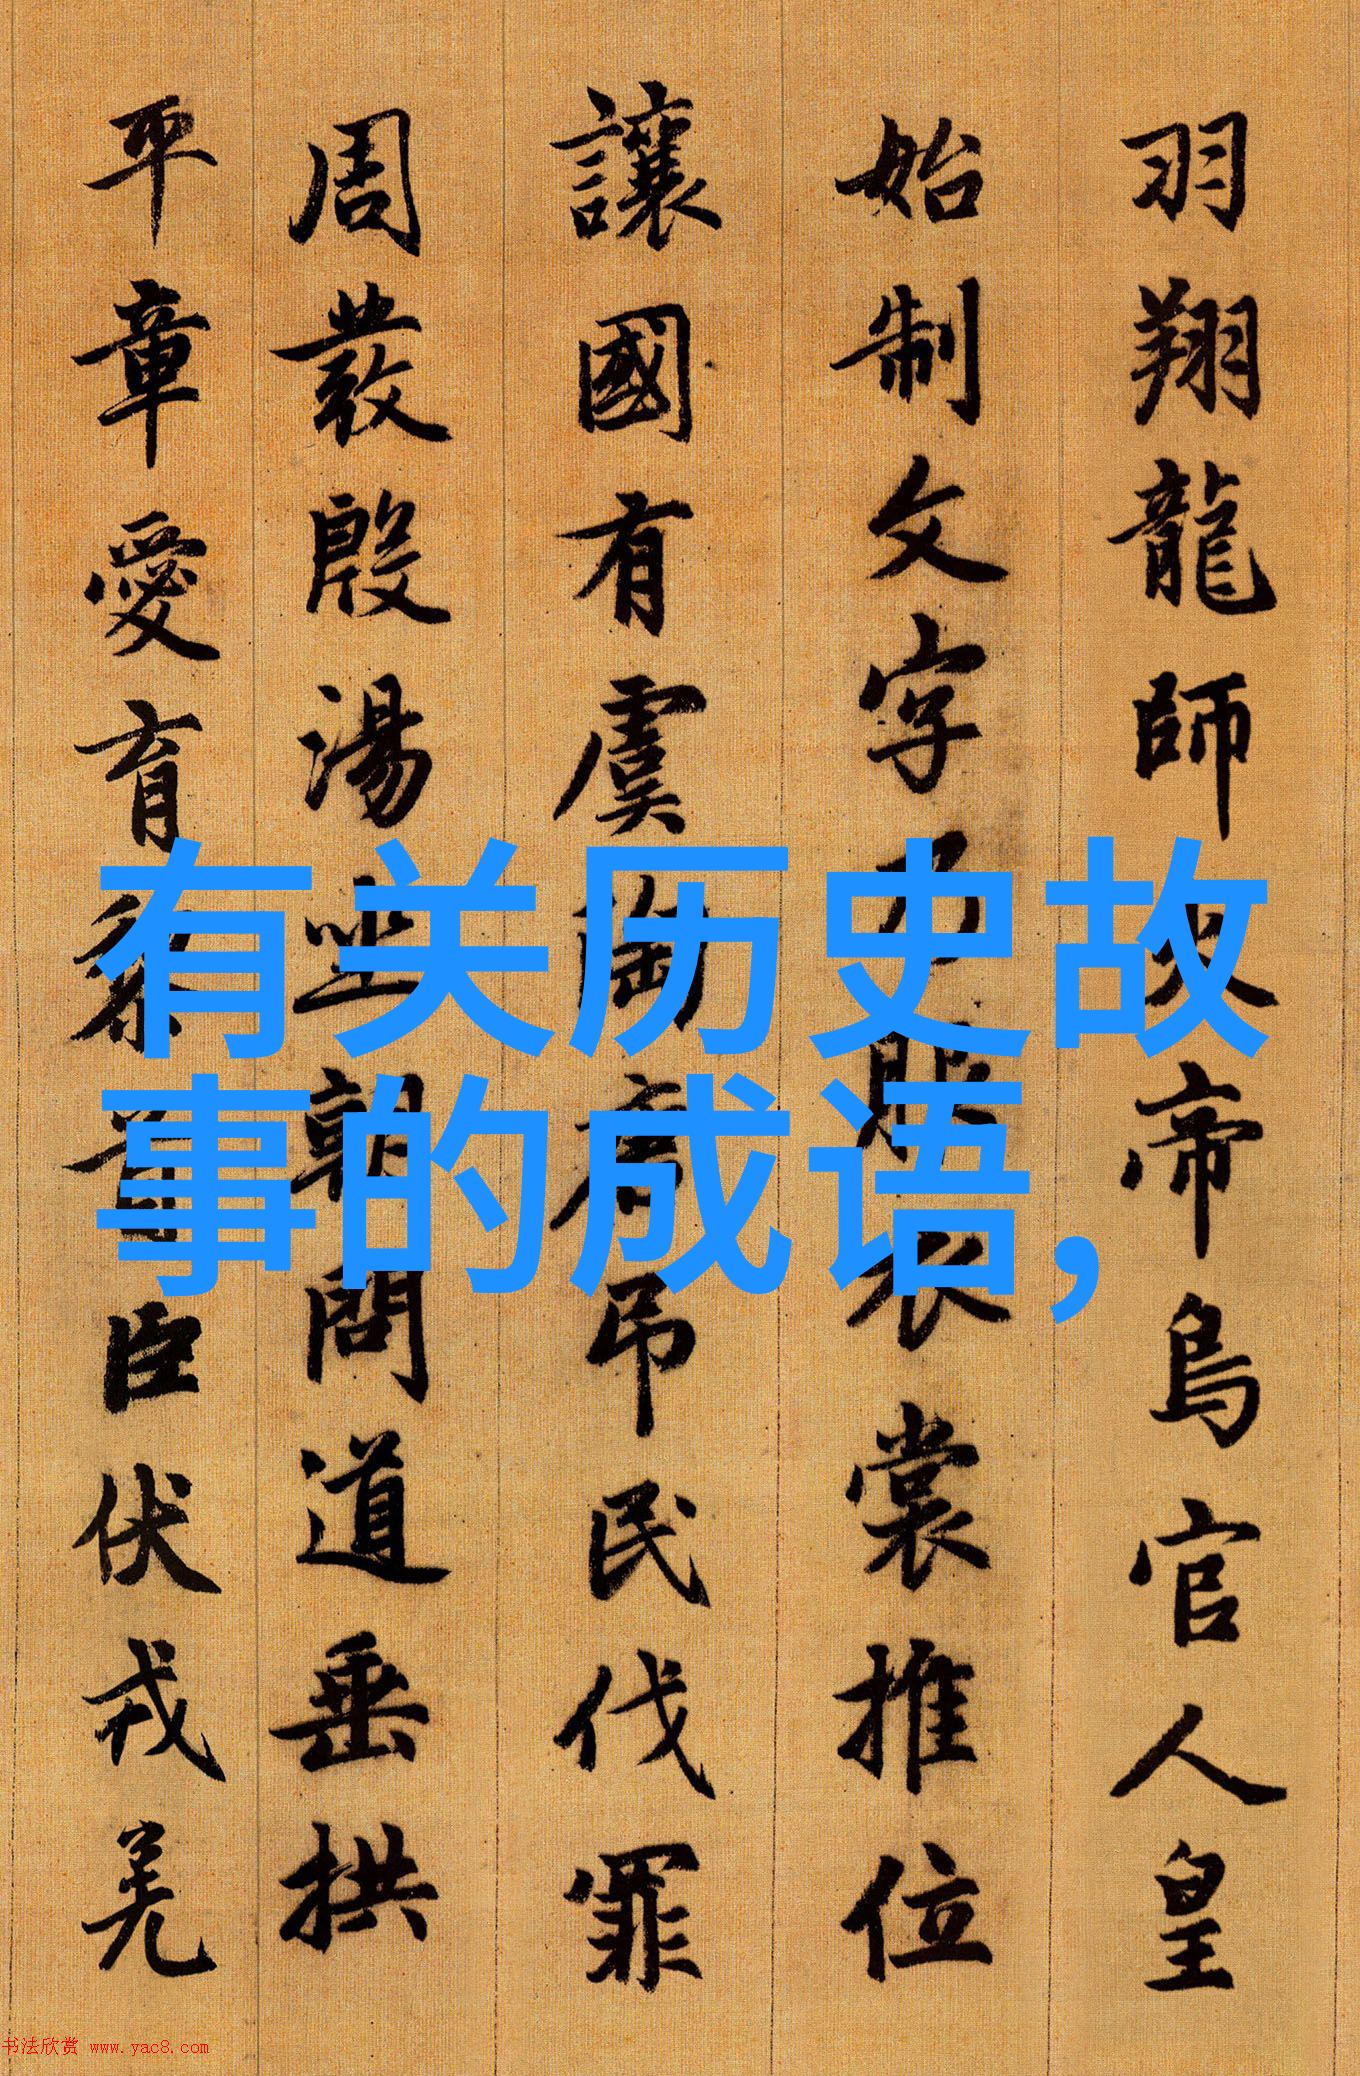 羽翔龍師火帝鳥官人皇
始制文字乃服衣裳推位
讓國有虞陶唐吊民伐罪
周發殷湯坐朝問道垂拱
平章愛育黎首臣伏戎羌
有关历史故
事的成语,
书法欣赏 www.yac8.com